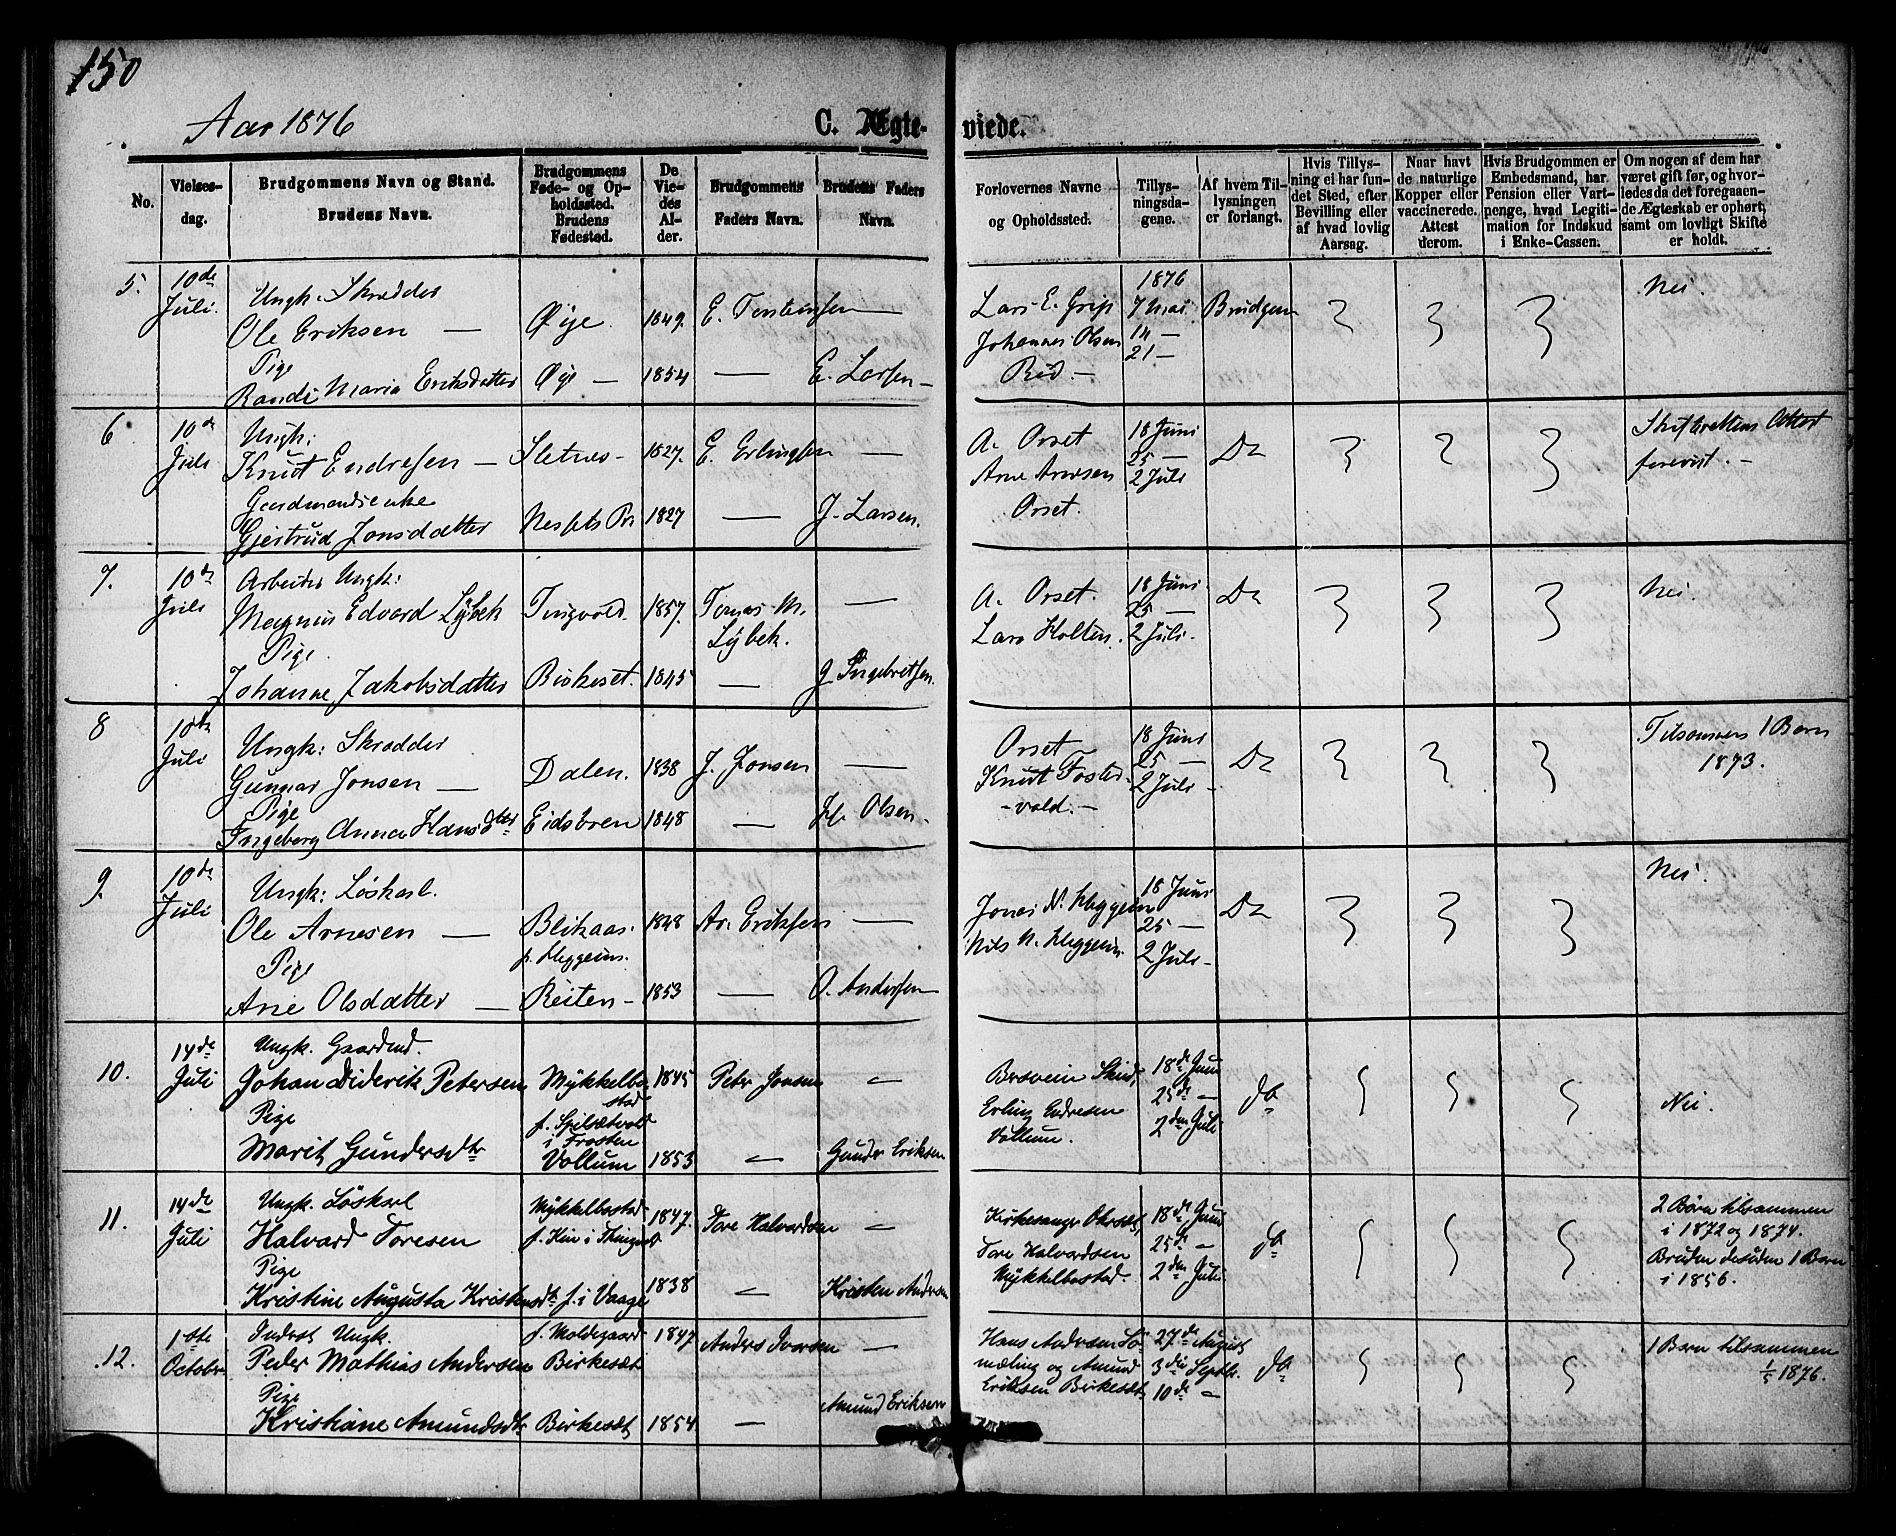 150
Aar 1876
C. Ægte-
viede.
No.
Vielses-
dag.
Brudgommens Navn og Stand.
Brudens Navn.
Brudgommens
Føde- og Op-
holdssted.
Brudens
Fødested.
De
Vie-
des
Al-
der.
Brudgommens
Faders Navn.
Brudens Faders
Navn.
Forlovernes Navne
og Opholdssted.
Tillys-
ningsda-
gene.
Af hvem Til-
lysningen
er forlangt.
Hvis Tillys-
ning ei har fun-
det Sted, efter
Bevilling eller
af hvad lovlig
Aarsag.
Naar havt
de naturlige
Kopper eller
vaccinerede.
Attest
derom.
Hvis Brudgommen er
Embedsmand, har
Pension eller Vart-
penge, hvad Legiti-
mation for Indskud
i Enke-Cassen.
Om nogen af dem har
været gift før, og hvor-
ledes da det foregaaen-
de Ægteskab er ophørt,
samt om lovligt Skifte
er holdt.
5.
10de
Juli.
Ungk. Skrædder
Ole Eriksen —
Pige
Randi Maria Eriksdatter
Øye
Øye —
1849.
1854
E. Torstensen
—
—
E. Larsen —
Lars E. Grip
Johannes Olsen
Bød. —
1876
7 Mai
14 —
21 —
Brudgom
Nei.
6
10de
Juli
Ungk:
Knut Endresen —
Gaardmandsenke
Gjertrud Jonsdatter
Sletnes —
Nessets Pr
1827.
1827
E. Erlingsen
—
—
J. Larsen.
A. Orset
Arne Arnesen
Orset.
18 Juni
25 —
2 Juli
Do
Skifterettens Attest
forevist. —
7.
10de
Juli
Arbeider Ungk:
Magnus Edvard Lybek
Pige
Johanne Jakobsdatter
Tingvold.
Birkeset.
1857.
1845
Tomas M.
Lybek.
—
—
J. Ingebretsen.
A. Orset.
Lars Holten.
18 Juni
25 —
2 Juli.
Do
Nei.
8
10de
Juli
Ungk: Skrædder
Gunnar Jonsen —
Pige
Ingeborg Anna Hansdtter
Dalen.
Eidsøren
1838
1848
J. Jonsen
—
—
H. Olsen.
Orset
Knut Foster-
-vold. —
18 Juni
25 —
2 Juli —
Do
Tilsammen 1 Barn
1873.
9.
10de
Juli
Ungk: Løskarl.
Ole Arnesen —
Pige
Ane Olsdatter —
Blikaas
f. Heggeim.
Reiten —
1848
1853
Ar. Eriksen
—
—
O. Andersen
Jonas N. Heggeim
Nils N. Heggeim
18 Juni
25 —
2 Juli —
Do
Nei.
10.
14de
Juli
Ungk. Gaardmd.
Johan Diderik Petersen
Pige
Marit Gundersdtr
Mykkelbo
stad
f. Spilsætvold
i Frosten
Vollum
1845
1853
Peter Jonsen
—
—
Gunder Eriksen
Bersvein Skud,
Erling Endresen
Vollum.
18de Juni
25de —
2den Juli
do
Nei.
11.
14de
Juli
Ungk. Løskarl
Halvard Toresen
Pige
Kristine Augusta Kristensdtr
Mykkelbostad
f. i Vaage
1847.
1838
Tore Halvardsen
—
—
Kristen Andersen
Kirkesanger Ohrset,
Tore Halvardsen
Mykkelbostad.
18de Juni
25de —
2den Juli
do
2 Børn tilsammen
i 1872 og 1874.
Bruden desuden 1 Barn
i 1856.
12.
1ste
October
Inderst Ungk.
Peder Mathias Andersen
Pige
Kristiane Amundsdtr
f. Moldegaard
Birkeset
Birkeset
1847
1854
Anders Iversen
—
—
Amund Eriksen
Hans Andersen Lø-
mæling og Amund
Eriksen Birkeset
27de August
3die Septbr.
10de —
do
1 Barn tilsammen
1/5 1876.